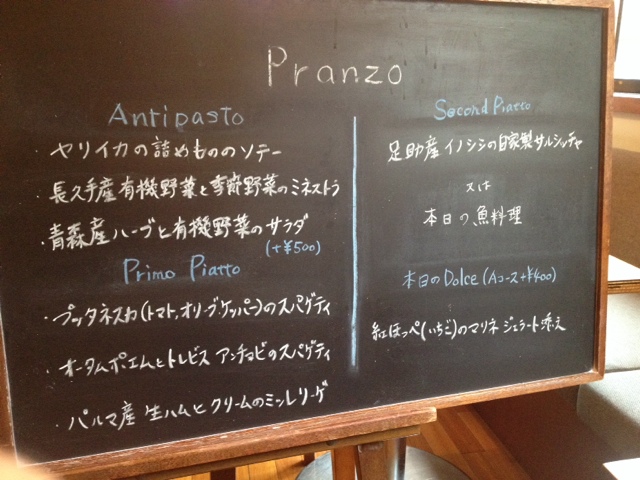 Pranzo
Antipasto
・ヤリイカの詰めもののソテー
・長久手産有機野菜と季節野菜のミネストラ
・青森産ハーブと有機野菜のサラダ
(+¥500)
Primo Piatto
・プッタネスカ(トマト,オリーブ,ケッパー)のスパゲティ
・オータムポエムとトレビス アンチョビのスパゲティ
・パルマ産 生ハムと クリームのミッレリーゲ
Second Piatto
足助産 イノシシの自家製サルシッチャ
又は
本日の魚料理
本日のDolce (Aコース+¥400)
紅ほっぺ(いちご)のマリネ ジェラート添え